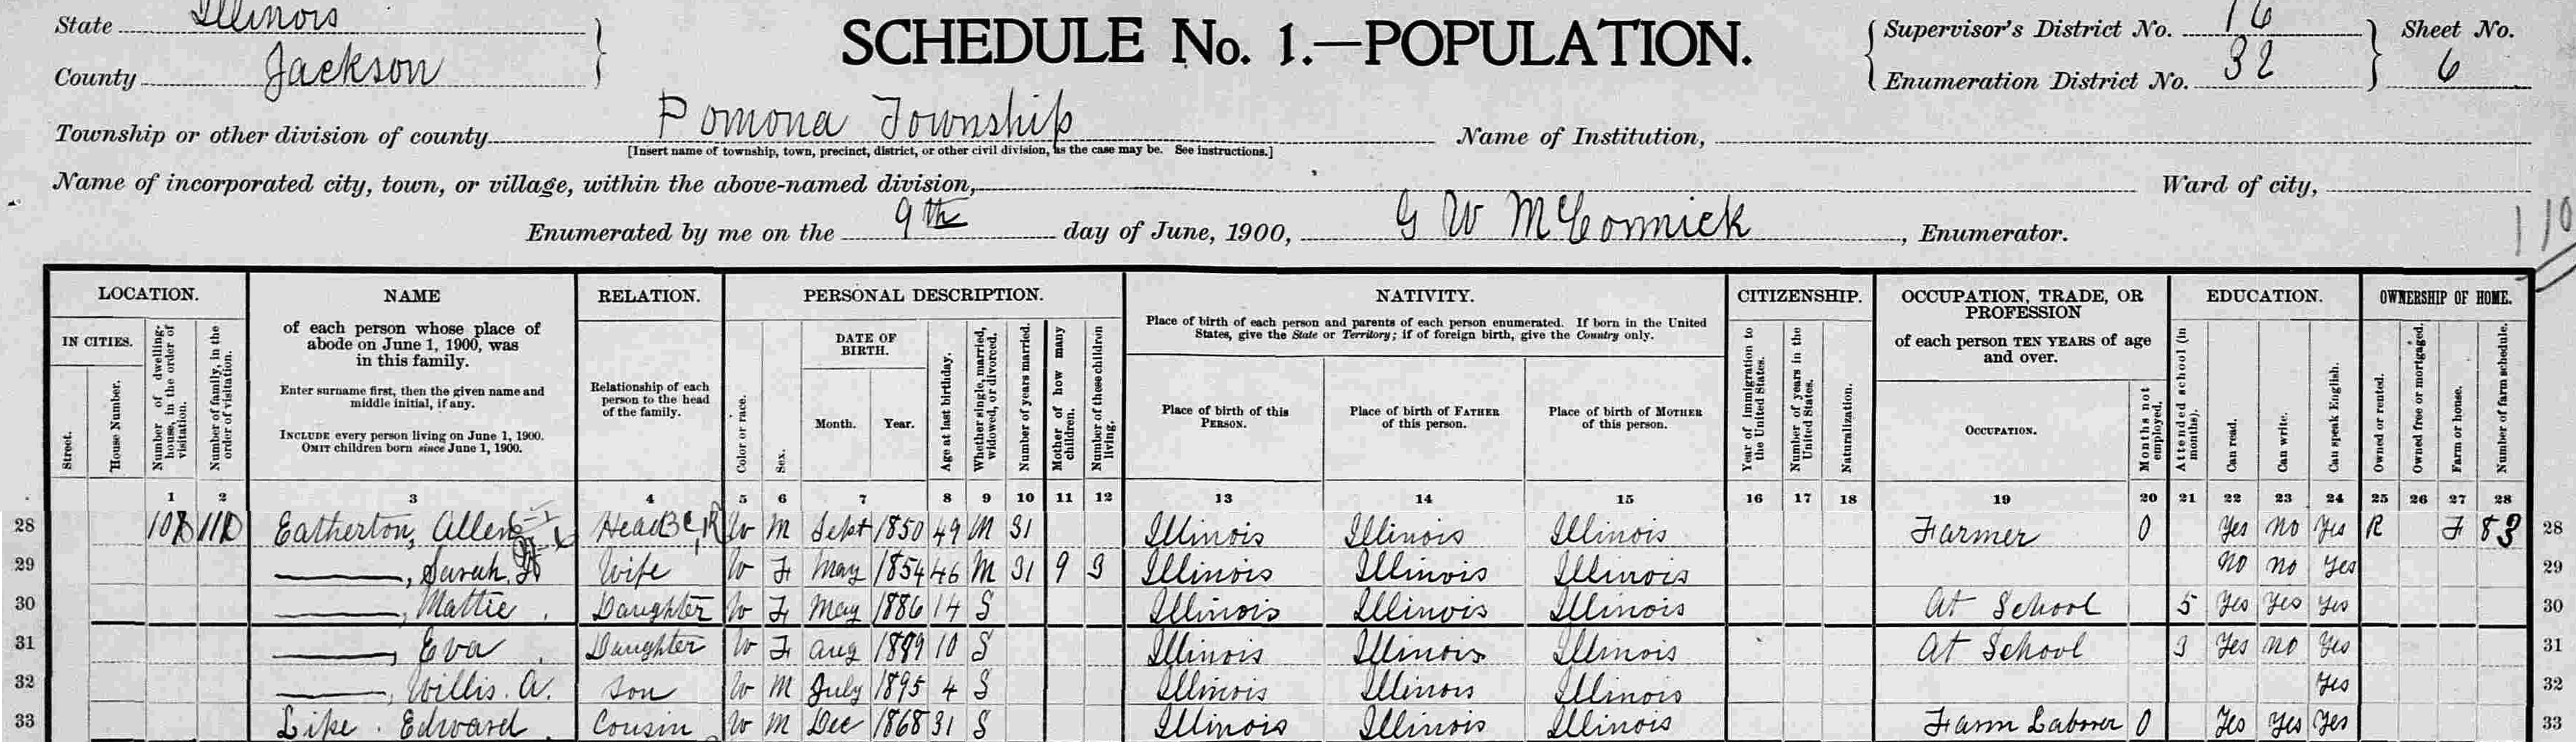 State Illinois
County Jackson
SCHEDULE No. 1.—POPULATION.
Supervisor's District No. 16
Enumeration District No. 32
Sheet No. 6
Township or other division of county Pomona Township
[Insert name of township, town, precinct, district, or other civil division, as the case may be. See instructions.]
Name of Institution,
Name of incorporated city, town, or village, within the above-named division,
Ward of city,
Enumerated by me on the 9th day of June, 1900, G W McCormick, Enumerator.
110
LOCATION. NAME RELATION. PERSONAL DESCRIPTION. NATIVITY. CITIZENSHIP. OCCUPATION, TRADE, OR PROFESSION EDUCATION. OWNERSHIP OF HOME.
IN CITIES.
Street.
House Number.
Number of dwelling-house, in the order of visitation.
Number of family, in the order of visitation.
of each person whose place of abode on June 1, 1900, was in this family.
Enter surname first, then the given name and middle initial, if any.
INCLUDE every person living on June 1, 1900.
OMIT children born since June 1, 1900.
Relationship of each person to the head of the family.
Color or race.
Sex.
DATE OF BIRTH.
Month.
Year.
Age at last birthday.
Whether single, married, widowed, or divorced.
Number of years married.
Mother of how many children.
Number of these children living.
Place of birth of each person and parents of each person enumerated. If born in the United States, give the State or Territory; if of foreign birth, give the Country only.
Place of birth of this PERSON.
Place of birth of FATHER of this person.
Place of birth of MOTHER of this person.
Year of immigration to the United States.
Number of years in the United States.
Naturalization.
of each person TEN YEARS of age and over.
OCCUPATION.
Months not employed.
Attended school (in months).
Can read.
Can write.
Can speak English.
Owned or rented.
Owned free or mortgaged.
Farm or house.
Number of farm schedule.
1 2 3 4 5 6 7 8 9 10 11 12 13 14 15 16 17 18 19 20 21 22 23 24 25 26 27 28
28 Eatherton, Allen Head W M Sept 1850 49 M 31 Illinois Illinois Illinois Farmer 0 Yes no Yes R F 83 28
29 ——, Sarah Wife W F May 1854 46 M 31 9 3 Illinois Illinois Illinois No no Yes 29
30 ——, Mattie Daughter W F May 1886 14 S Illinois Illinois Illinois At School 5 Yes Yes Yes 30
31 ——, Eva Daughter W F Aug 1889 10 S Illinois Illinois Illinois At School 3 Yes no Yes 31
32 ——, Willis. A. Son W M July 1895 4 S Illinois Illinois Illinois Yes 32
33 Lipe. Edward Cousin W M Dec 1868 31 S Illinois Illinois Illinois Farm Laborer 0 Yes Yes Yes 33